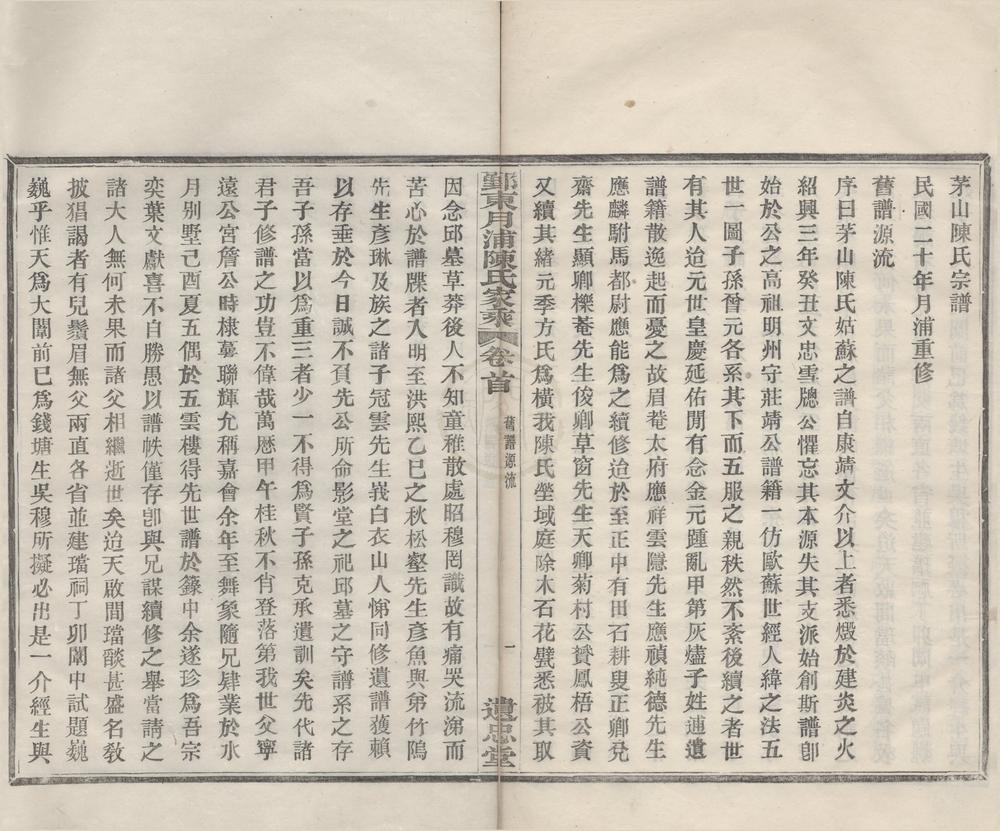 茅山陳氏宗譜
民國二十年月浦重修
舊譜源流
序曰茅山陳氏姑蘇之譜自康靖文介以上者悉燬於建炎之火
紹興三年癸丑文忠雪牎公懼忘其本源失其支派始創斯譜卽
始於公之高祖明州守莊靖公譜籍一仿歐蘇世經人緯之法五
世一圖子孫晉元各系其下而五服之親秩然不紊後續之者世
有其人迨元世皇慶延佑閒有念金元踵亂甲第灰燼子姓逋遺
譜籍散逸起而憂之故眉菴太府應祥雲隱先生應禎純德先生
應麟駙馬都尉應能爲之續修迨於至正中有田石耕叟正卿兌
齋先生顯卿櫟菴先生俊卿草窗先生天卿菊村公贇鳳梧公資
又續其緒元季方氏爲橫我陳氏塋域庭除木石花甓悉被其取
鄞東月浦陳氏家乘
卷首
舊譜源流
一
遺忠堂
因念邱墓草莽後人不知童稚散處昭穆罔識故有痛哭流涕而
苦心於譜牒者入明至洪熙乙巳之秋松壑先生彥魚與弟竹隖
先生彥琳及族之諸子冠雲先生峩白衣山人悌同修遺譜蒦賴
以存垂於今日誠不負先公所命影堂之祀邱墓之守譜系之存
吾子孫當以爲重三者少一不得爲賢子孫克承遺訓矣先代諸
君子修譜之功豈不偉哉萬厯甲午桂秋不肖登落第我世父寧
遠公宮詹公時棣蕚聯輝允稱嘉會余年至舞象隨兄肄業於水
月別墅己酉夏五偶於五雲樓得先世譜於籙中余遂珍爲吾宗
奕葉文獻喜不自勝愚以譜帙僅存卽與兄謀續修之舉當請之
諸大人無何未果而諸父相繼逝世矣迨天啟間璫燄甚盛名敎
披猖謁者有兒鬚眉無父兩直各省並建璫祠丁卯闈中試題巍
巍乎惟天爲大闈前已爲錢塘生吳穆所擬必出是一介經生與